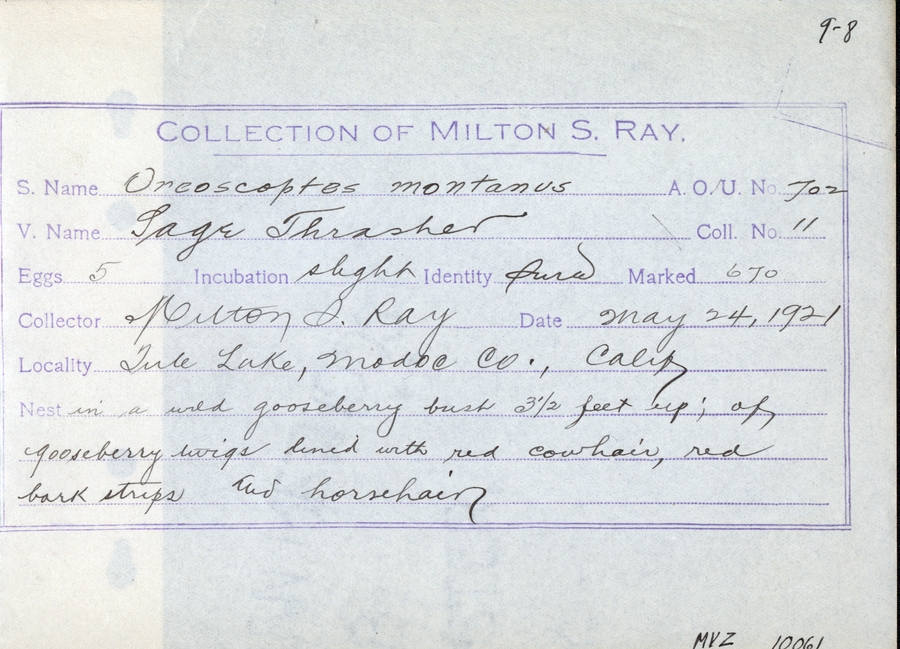 9-8
COLLECTION OF MILTON S. RAY.
S. Name Oreoscoptes montanus A. O. U. No. 702
V. Name Sage Thrasher Coll. No. 11
Eggs 5 Incubation slight Identity sure Marked 670
Collector Milton S. Ray Date May 24, 1921
Locality Tule Lake, Modoc Co., Calif
Nest in a wild gooseberry bush 3 1/2 feet up; of
gooseberry twigs lined with red cowhair, red
bark strips and horsehair
MVZ 10061